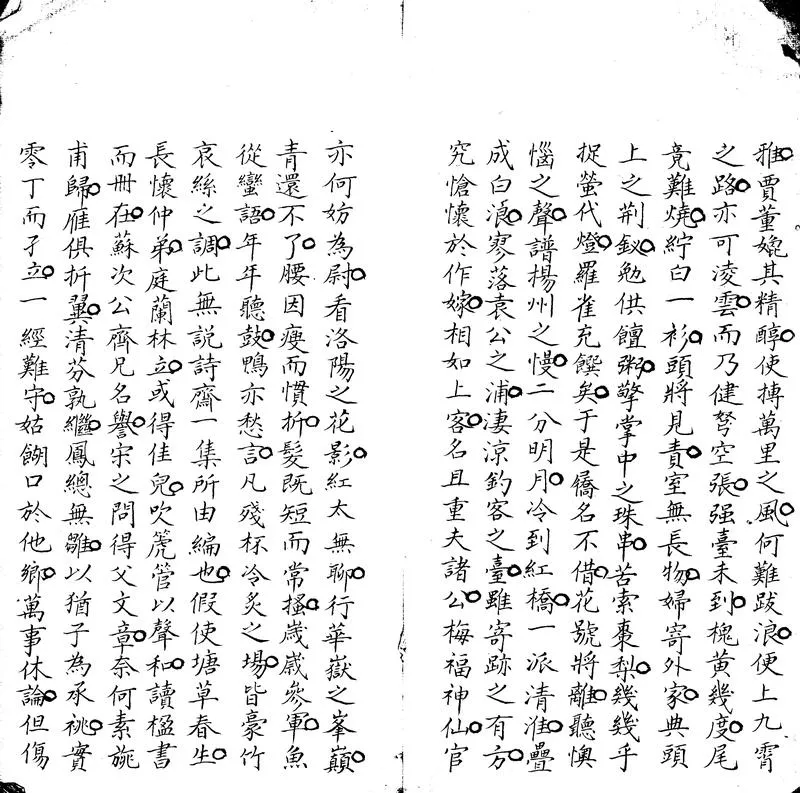 雅賈董媲其精醇便摶萬里之風何難跋浪便上九霄
之路亦可凌雲而乃健弩空張强臺未到槐黄幾度尾
竟難燒紵白一衫頭將見責室無長物婦寄外家典頭
上之荆釵勉供饘粥擎掌中之珠串苦索棗梨幾幾乎
捉螢代燈羅雀充饌矣于是僑名不借花號將離聽懊
惱之聲譜楊州之慢二分明月冷到紅橋一派清淮疊
成白浪寥落袁公之浦凄涼釣客之臺雖寄跡之有方
究愴懷於作嫁相如上客名且重夫諸公梅福神仙官
亦何妨為尉看洛陽之花影紅太無聊行華嶽之峯巔
青還不了腰因瘦而慣折髮既短而常搔嵗嵗參軍魚
從蠻語年年聽鼓鴨亦愁言凡殘杯冷炙之場皆豪竹
哀絲之調此無説詩齋一集所由編也假使塘草春生
長懷仲弟庭蘭林立或得佳兒吹箎管以聲和讀楹書
而冊在蘇次公齊兄名譽宋之問得父文章奈何素旐
甫歸雁俱折翼清芬孰繼鳳總無雛以猶子為承祧實
零丁而孑立一經難守姑餬口於他鄉萬事休論但傷